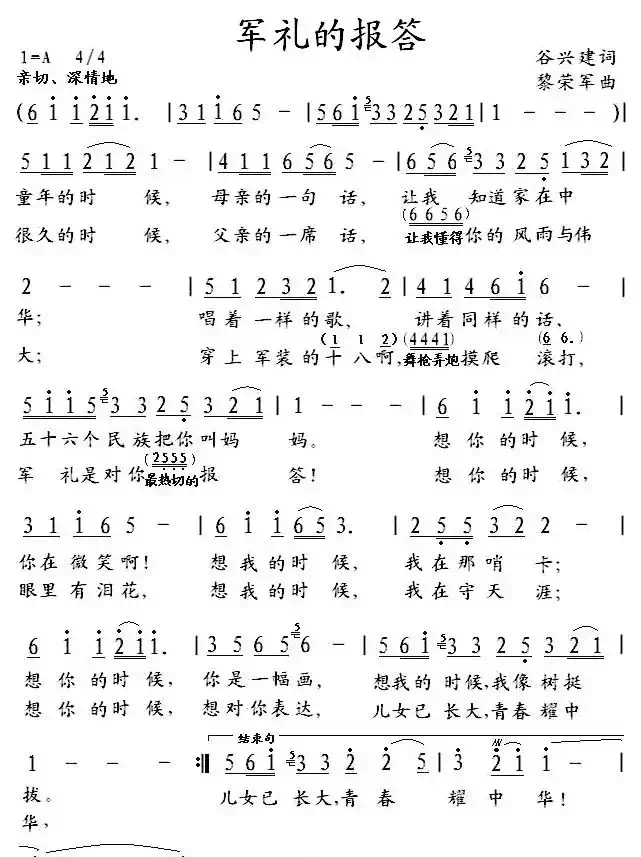 军礼的报答
1=A 4/4
谷兴建词
亲切、深情地
黎荣军曲
(6 1 1 2 1 1. | 3 1 1 6 5 - | 5 6 1 5 3 3 2 5 3 2 1 | 1 - - - )|
5 1 1 2 1 2 1 - | 4 1 1 6 5 6 5 - | 6 5 6 5 3 3 2 5 1 3 2 |
童年的时 候, 母亲的一句 话, 让我 知道家在中
(6 6 5 6)
很久的时 候, 父亲的一席 话, 让我懂得你的风雨与伟
2 - - - | 5 1 2 3 2 1. 2 | 4 1 4 6 1 6 - |
华; 唱着一样的歌, 讲着同样的话,
(1 1 2) (4441) (6 6.)
大; 穿上军装的十八啊, 舞枪弄炮摸爬 滚打,
5 1 1 5 5 3 3 2 5 3 2 1 | 1 - - - | 6 1 1 2 1 1. |
五十六个民族把你叫妈 妈。 想你的时候,
(2555)
军 礼是对你最热切的报 答! 想你的时候,
3 1 1 6 5 - | 6 1 1 6 5 3. | 2 5 5 3 2 2 - |
你在微笑啊! 想我的时候, 我在那哨 卡;
眼里有泪花, 想我的时候, 我在守天 涯;
6 1 1 2 1 1. | 3 5 6 5 5 6 - | 5 6 1 5 3 3 2 5 3 2 1 |
想你的时候, 你是一幅画, 想我的时候,我像树挺
想你的时候, 想对你表达, 儿女已长大,青春耀中
结束句
1 - - - :‖ 5 6 1 5 3 3 2 2 5 | 3 2 1 1 - |
拔。 儿女已长大,青春 耀中华!
华,